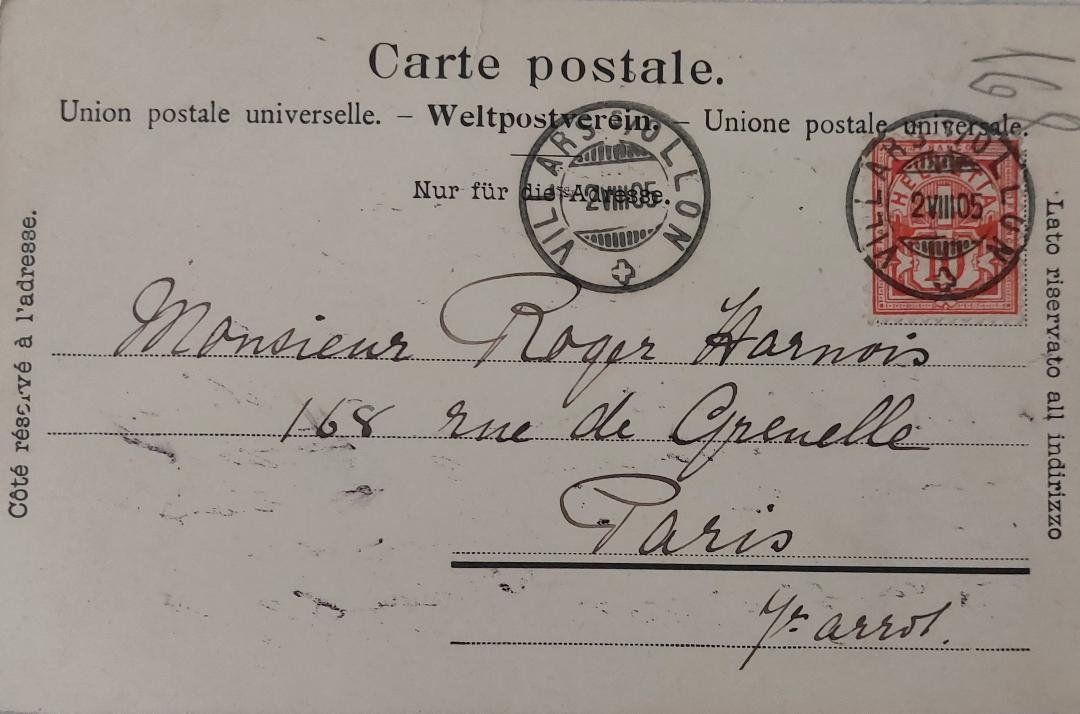 Carte postale.
Union postale universelle. – Weltpostverein. – Unione postale universale.
Nur für die Adresse.
Côté réservé à l'adresse.
Lato riservato all indirizzo
VILLARS s/OLLON
2 VIII 05
VILLARS s/OLLON
2 VIII 05
HELVETIA
10
Monsieur Roger Harnois
168 rue de Grenelle
Paris
7e arrot.